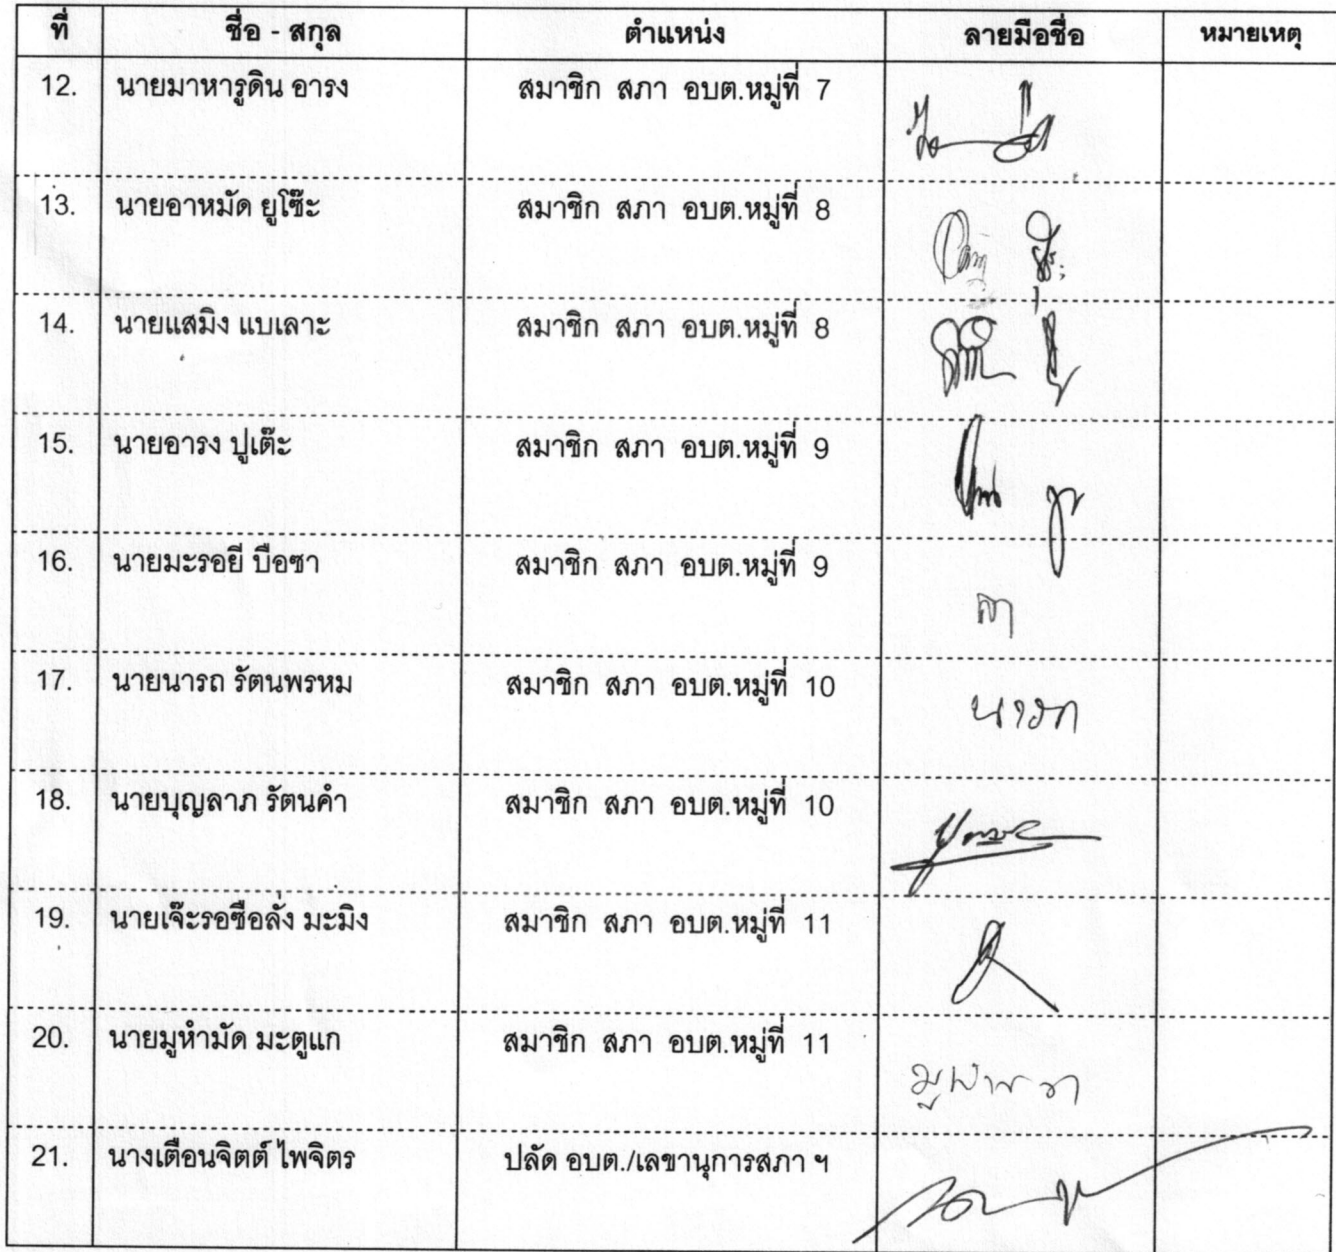 ที่ ชื่อ - สกุล ตำแหน่ง ลายมือชื่อ หมายเหตุ
12. นายมาหารูดิน อารง สมาชิก สภา อบต.หมู่ที่ 7
13. นายอาหมัด ยูโซ๊ะ สมาชิก สภา อบต.หมู่ที่ 8
14. นายแสมิง แบเลาะ สมาชิก สภา อบต.หมู่ที่ 8
15. นายอารง ปูเต๊ะ สมาชิก สภา อบต.หมู่ที่ 9
16. นายมะรอยี บือซา สมาชิก สภา อบต.หมู่ที่ 9
17. นายนารถ รัตนพรหม สมาชิก สภา อบต.หมู่ที่ 10
18. นายบุญลาภ รัตนคำ สมาชิก สภา อบต.หมู่ที่ 10
19. นายเจ๊ะรอซือลั่ง มะมิง สมาชิก สภา อบต.หมู่ที่ 11
20. นายมูหำมัด มะตูแก สมาชิก สภา อบต.หมู่ที่ 11
21. นางเตือนจิตต์ ไพจิตร ปลัด อบต./เลขานุการสภา ฯ